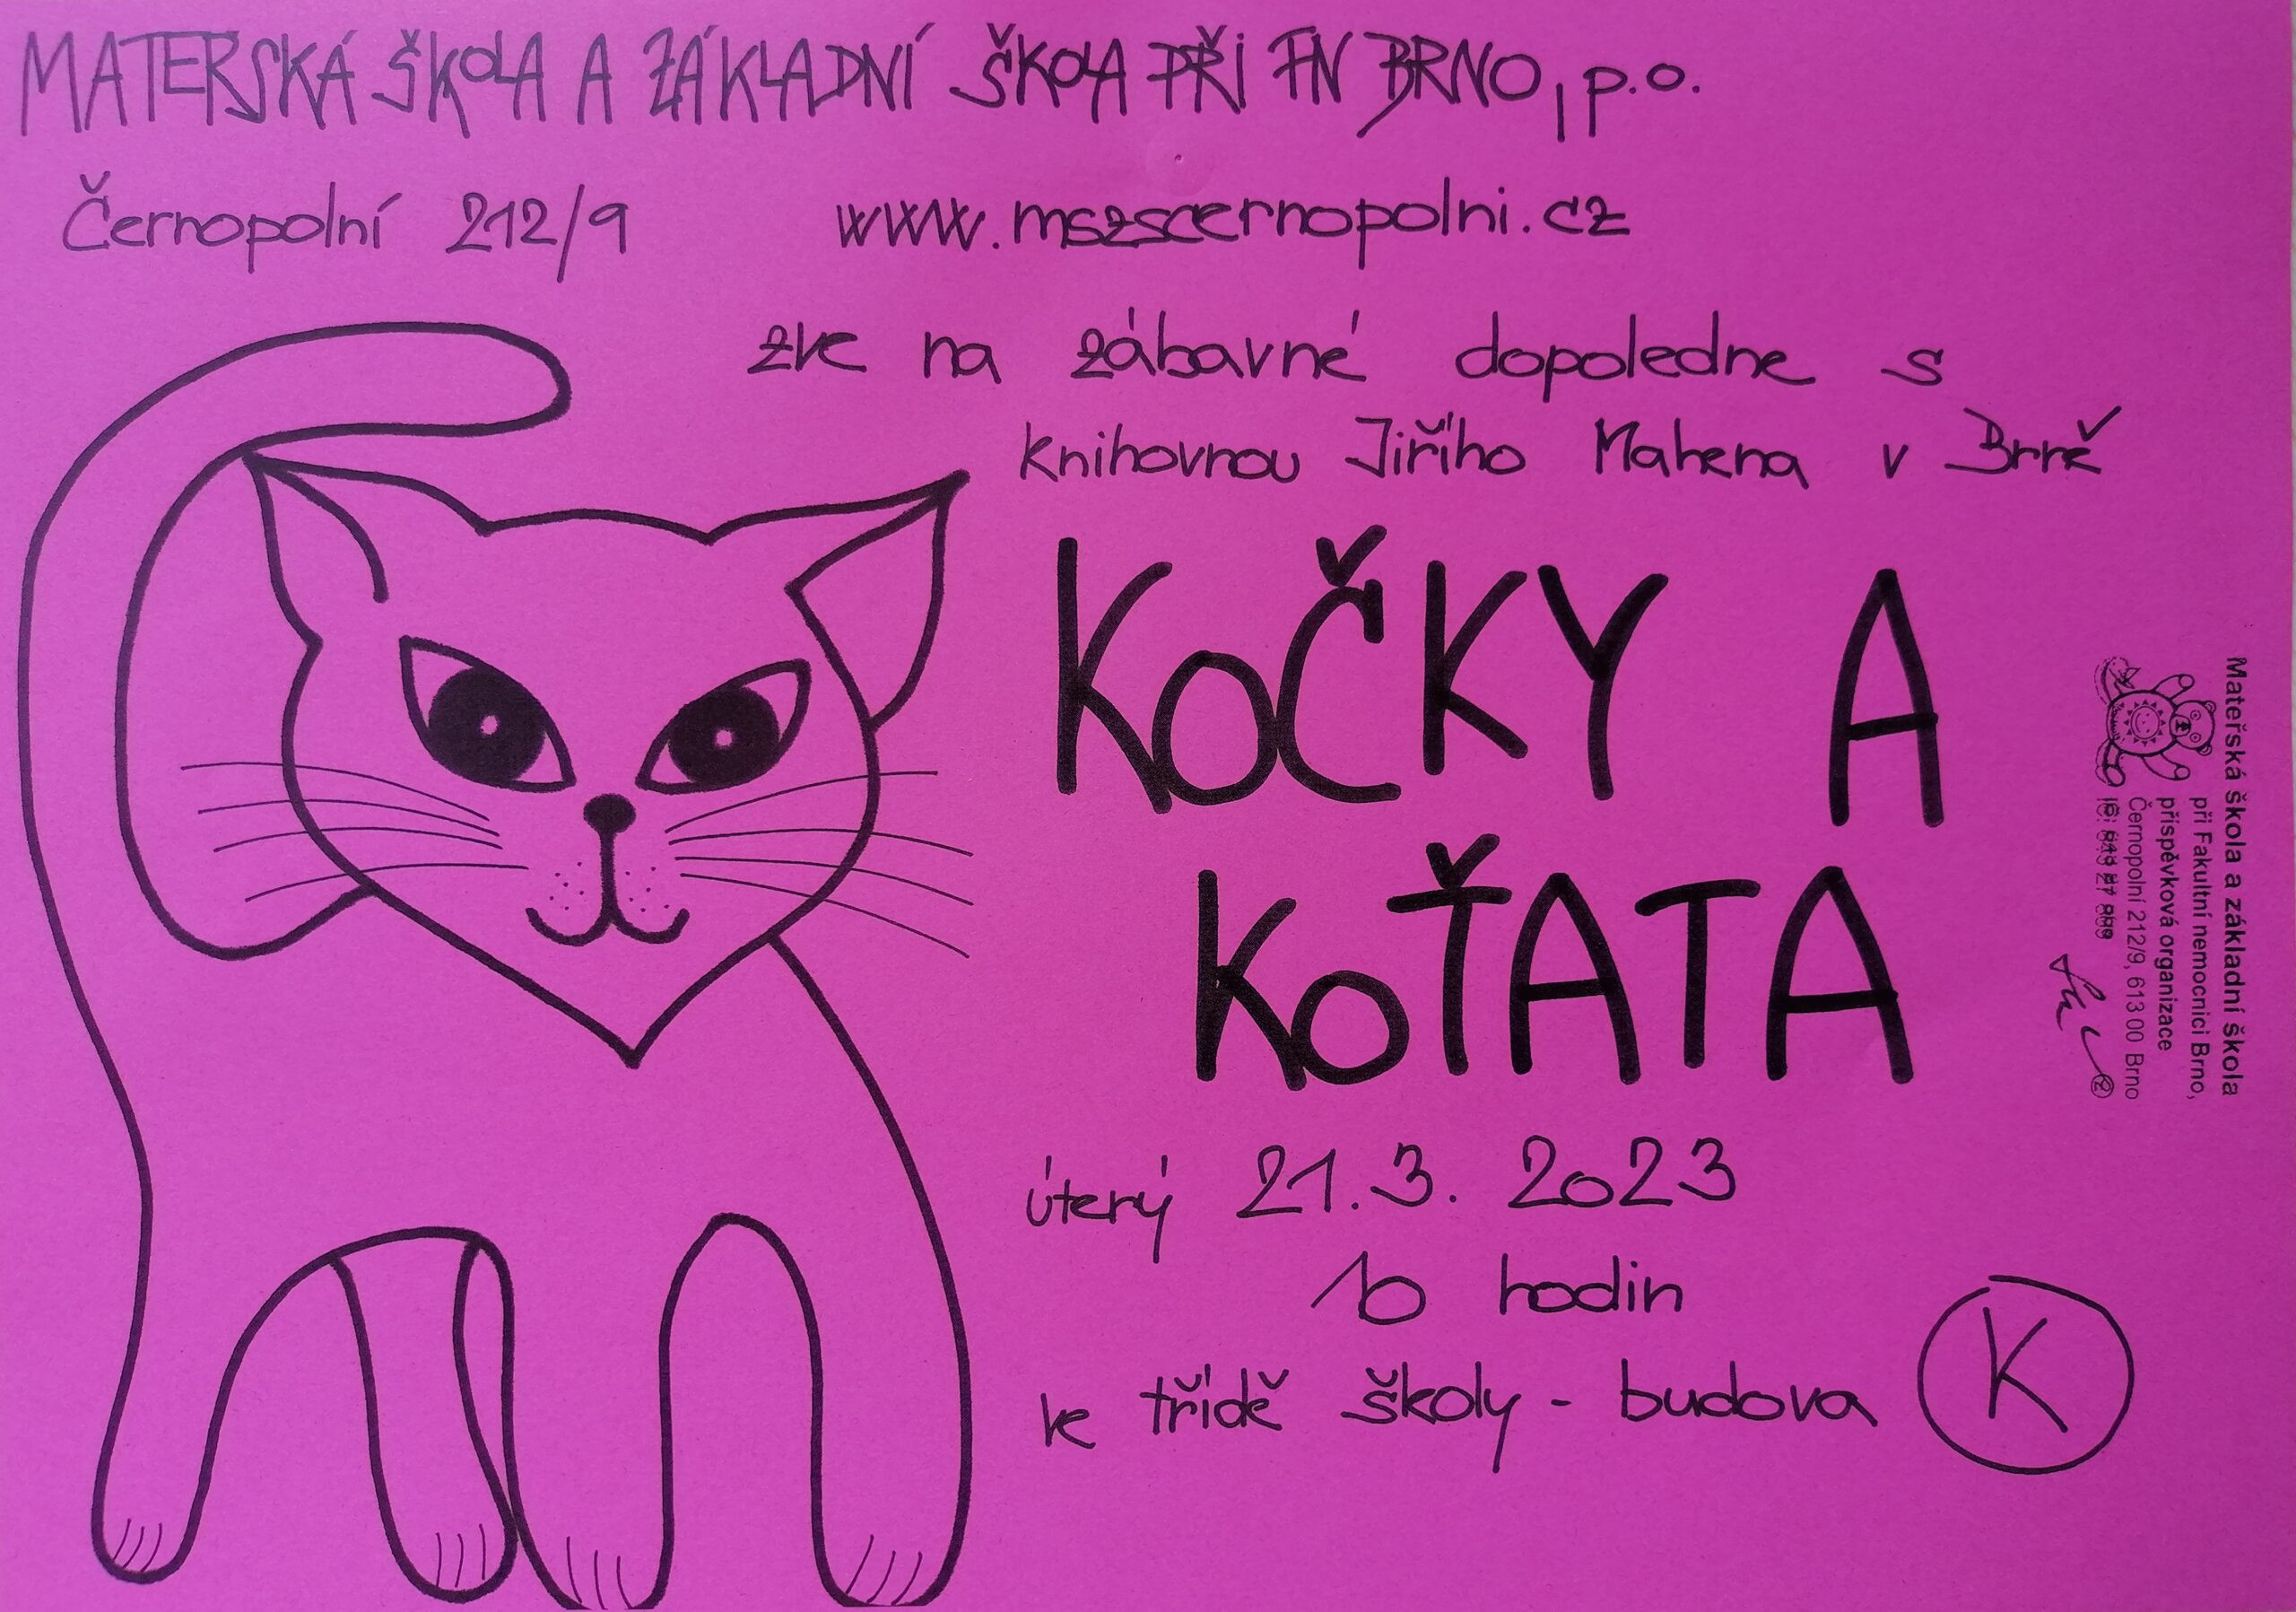 MATERSKÁ ŠKOLA A ZÁKLADNÍ ŠKOLA PŘI FN BRNO, p.o.
Černopolní 212/9 www.mszscernopolni.cz
zve na zábavné dopoledne s
knihovnou Jiřího Mahena v Brně
KOČKY A
KOŤATA
úterý 21.3. 2023
10 hodin
ve třídě školy - budova K
Mateřská škola a základní škola
při Fakultní nemocnici Brno,
příspěvková organizace
Černopolní 212/9, 613 00 Brno
②